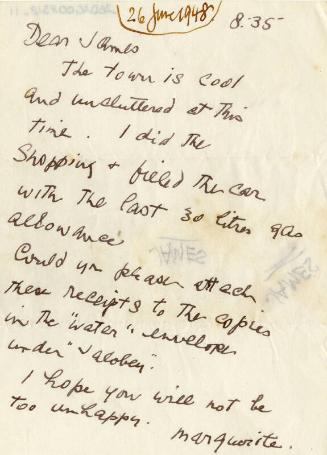 26 June 1948
8.35
Dear James
The town is cool
and uncluttered at this
time. I did the
Shopping + filled the car
with the last 30 litres gas
allowance
Could you please attach
these receipts to the copies
in the "water" envelope
under
I hope you will not be
too unhappy.
Marguerite.
JAMES